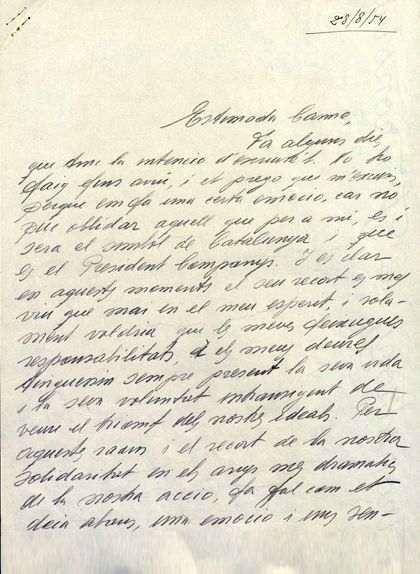 28/8/54
Estimada Carme,
Fa alguns dies
que tinc la intenció d'escriure't. No ho
faig fins avui, i et prego que m'excusis,
perque em fa una certa emoció, car no
puc oblidar aquell que per a mi, es i
sera el simbol de Catalunya i que
es el President Companys. I es clar
en aquests moments el seu record es mes
viu que mai en el meu esperit, i sola-
ment voldria que les meves feixugues
responsabilitats, i els meus deures
tinguessin sempre present la seva vida
i la seva voluntat intransigent de
veure el triomf dels nostres ideals. Per
aquestes raons i el record de la nostra
solidaritat en els anys mes dramatics
de la nostra acció, fa tal com et
deia abans, una emoció i uns sen-